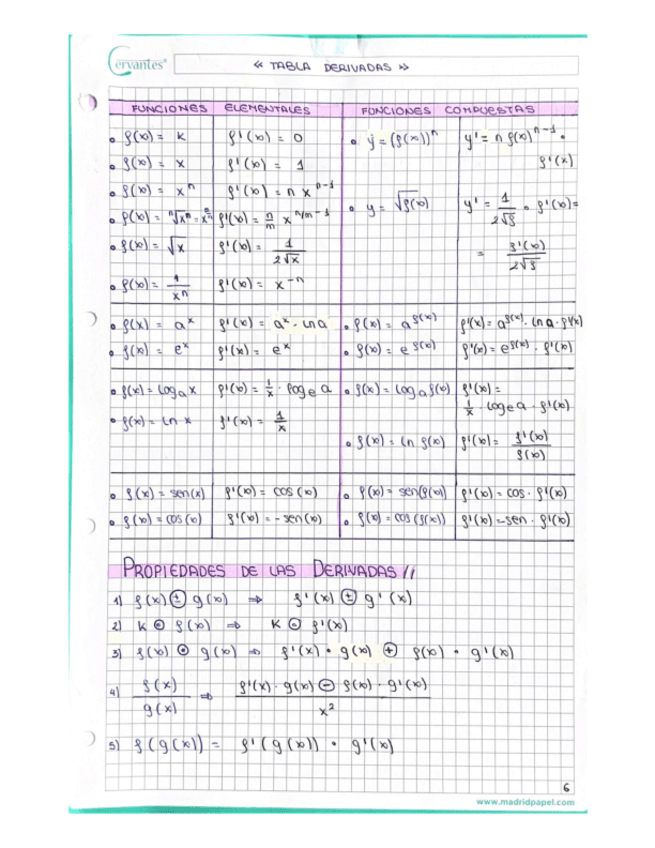 Cervantes®
« TABLA DERIVADAS »
FUNCIONES ELEMENTALES FUNCIONES COMPUESTAS
• f(x) = k f'(x) = 0 • y = (f(x))ⁿ y' = n f(x)ⁿ⁻¹ • f'(x)
• f(x) = x f'(x) = 1
• f(x) = xⁿ f'(x) = n xⁿ⁻¹
• y = √f(x) y' = 1/2√f • f'(x) =
• f(x) = ᵐ√xⁿ = f'(x) = n/m x^(n/m - 1)
• f(x) = √x f'(x) = 1/2√x = f'(x)/2√f
• f(x) = 1/xⁿ f'(x) = x⁻ⁿ
• f(x) = aˣ f'(x) = aˣ · Ln a • f(x) = a^f(x) f'(x) = a^f(x) · Ln a · f'(x)
• f(x) = eˣ f'(x) = eˣ • f(x) = e^f(x) f'(x) = e^f(x) · f'(x)
• f(x) = Logₐ x f'(x) = 1/x · loge a • f(x) = Logₐ f(x) f'(x) = 1/x · Loge a · f'(x)
• f(x) = Ln x f'(x) = 1/x
• f(x) = Ln f(x) f'(x) = f'(x)/f(x)
• f(x) = sen(x) f'(x) = cos(x) • f(x) = sen(f(x)) f'(x) = cos · f'(x)
• f(x) = cos(x) f'(x) = - sen(x) • f(x) = cos(f(x)) f'(x) = -sen · f'(x)
PROPIEDADES DE LAS DERIVADAS //
1) f(x) ± g(x) ⇒ f'(x) ± g'(x)
2) k · f(x) ⇒ k · f'(x)
3) f(x) · g(x) ⇒ f'(x) · g(x) + f(x) · g'(x)
4) f(x)/g(x) ⇒ f'(x) · g(x) - f(x) · g'(x)/x²
5) f(g(x)) = f'(g(x)) · g'(x)
6
www.madridpapel.com